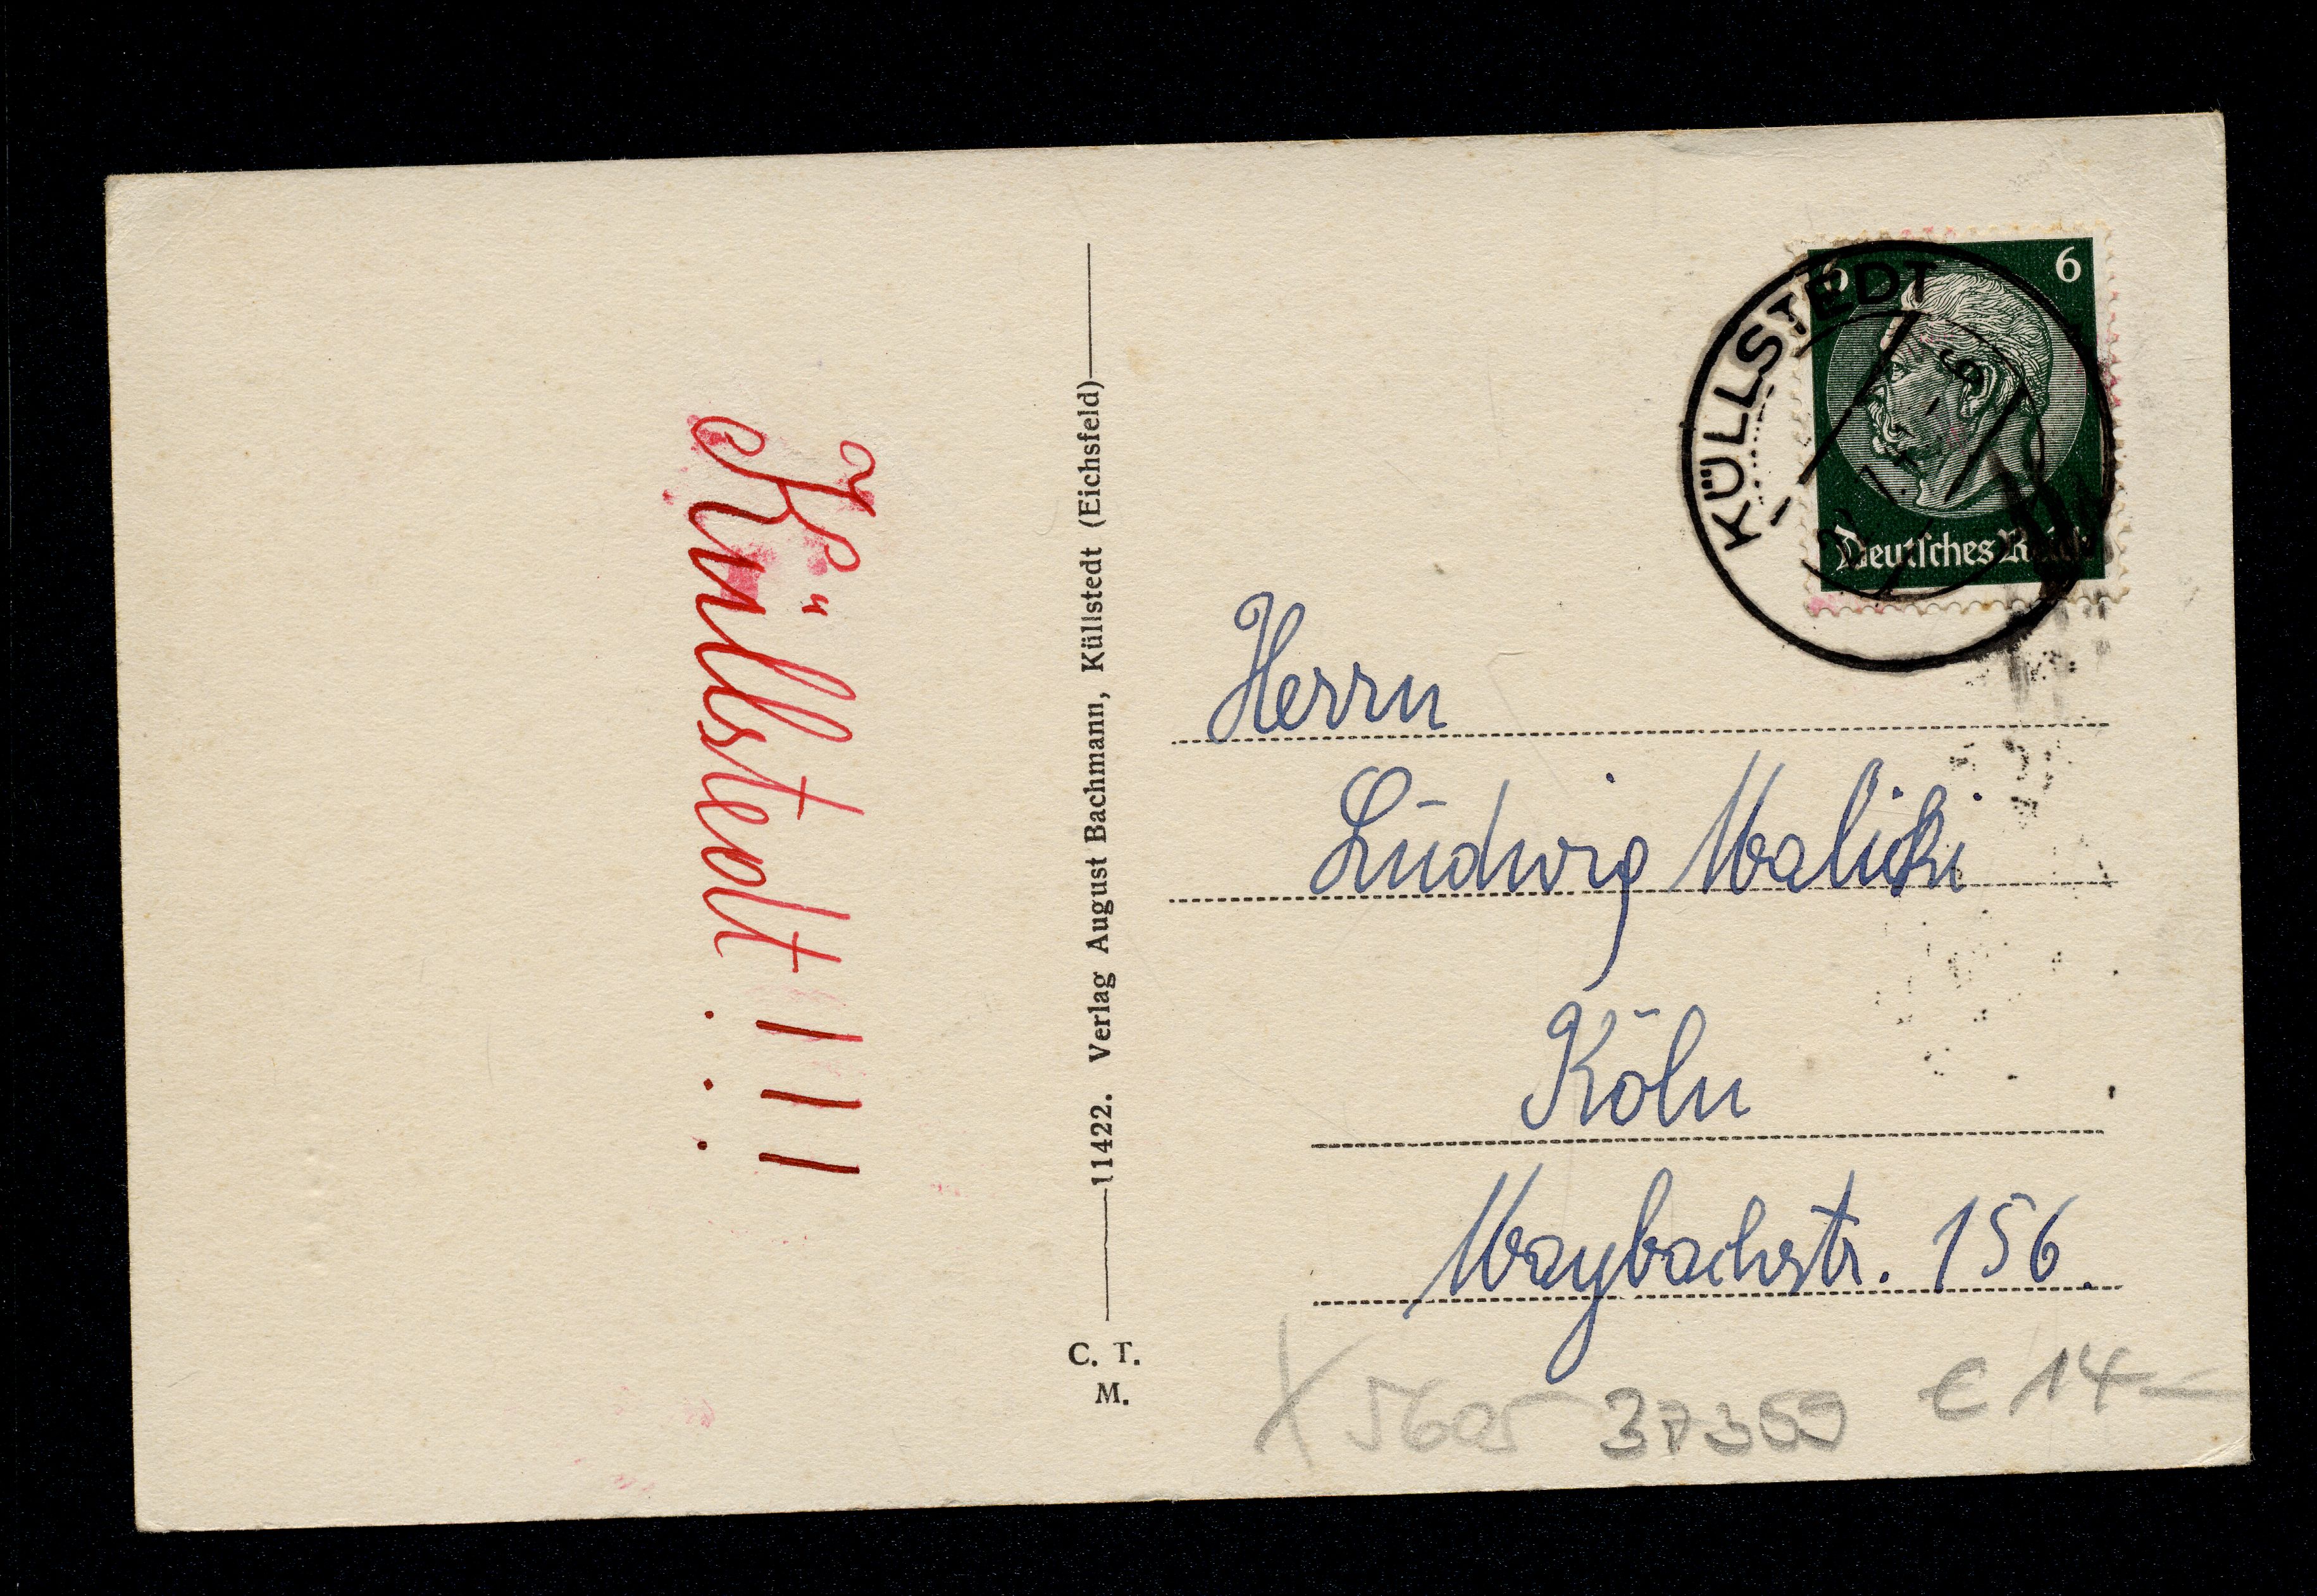 Küllstedt!!!
11422. Verlag August Bachmann, Küllstedt (Eichsfeld)
C. T.
M.
KÜLLSTEDT
6 6
Deutsches Reich
Herrn
Ludwig Malicki
Köln
Maybachstr. 156.
37359 € 14-